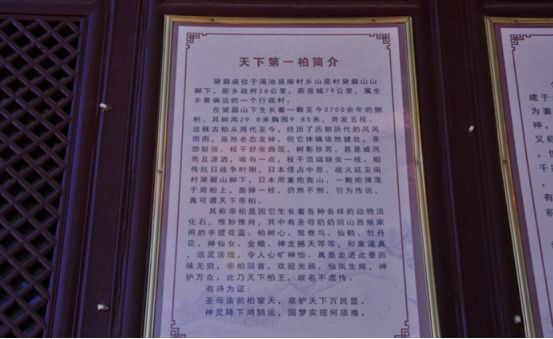 天下第一柏简介
黛眉庙位于渑池县南村乡山底村黛眉山山
脚下，距乡政府26公里，距县城79公里，属全
乡最偏远的一个行政村。
在黛眉山下生长着一颗至今3700余年的侧
柏，其树高29.8米胸围9.85米，并发五枝。
这株古柏从周代至今，经历了历朝历代的风风
雨雨，虽然老态龙钟，但它体魄依然健壮，苍
劲挺拔，枝干舒张曲屈，树影扶苏，甚是威风
而且潇洒，唯有一点，枝干顶端缺失一枝。相
传抗日战争时期，日本侵占中原，战火延至南
村黛眉山脚下，日本用重炮轰山，一颗炮弹落
于周柏上，轰掉一枝，仍然不倒，引为传说，
真可谓天下帝柏。
其称帝柏是因它生长着各种各样的动物活
化石，惟妙惟肖，其中有圣母奶奶回山西娘家
用的手提花蓝、柏树心、鸳鸯鸟、仙鹤、牡丹
花、神仙女、金蟾、神龙撼天等等，形象逼真
，活灵活现，令人心旷神怡。真是走进此景回
味无穷，帝柏回首，欢迎光顾，仙岚生辉，神
护万众。此乃天下柏王，故名不虚传。
有诗为证：
圣母庙前柏聚天，庇护天下万民显。
神灵降下鸿鹄运，国梦实现何须难。
建于
为妻
神，
又称